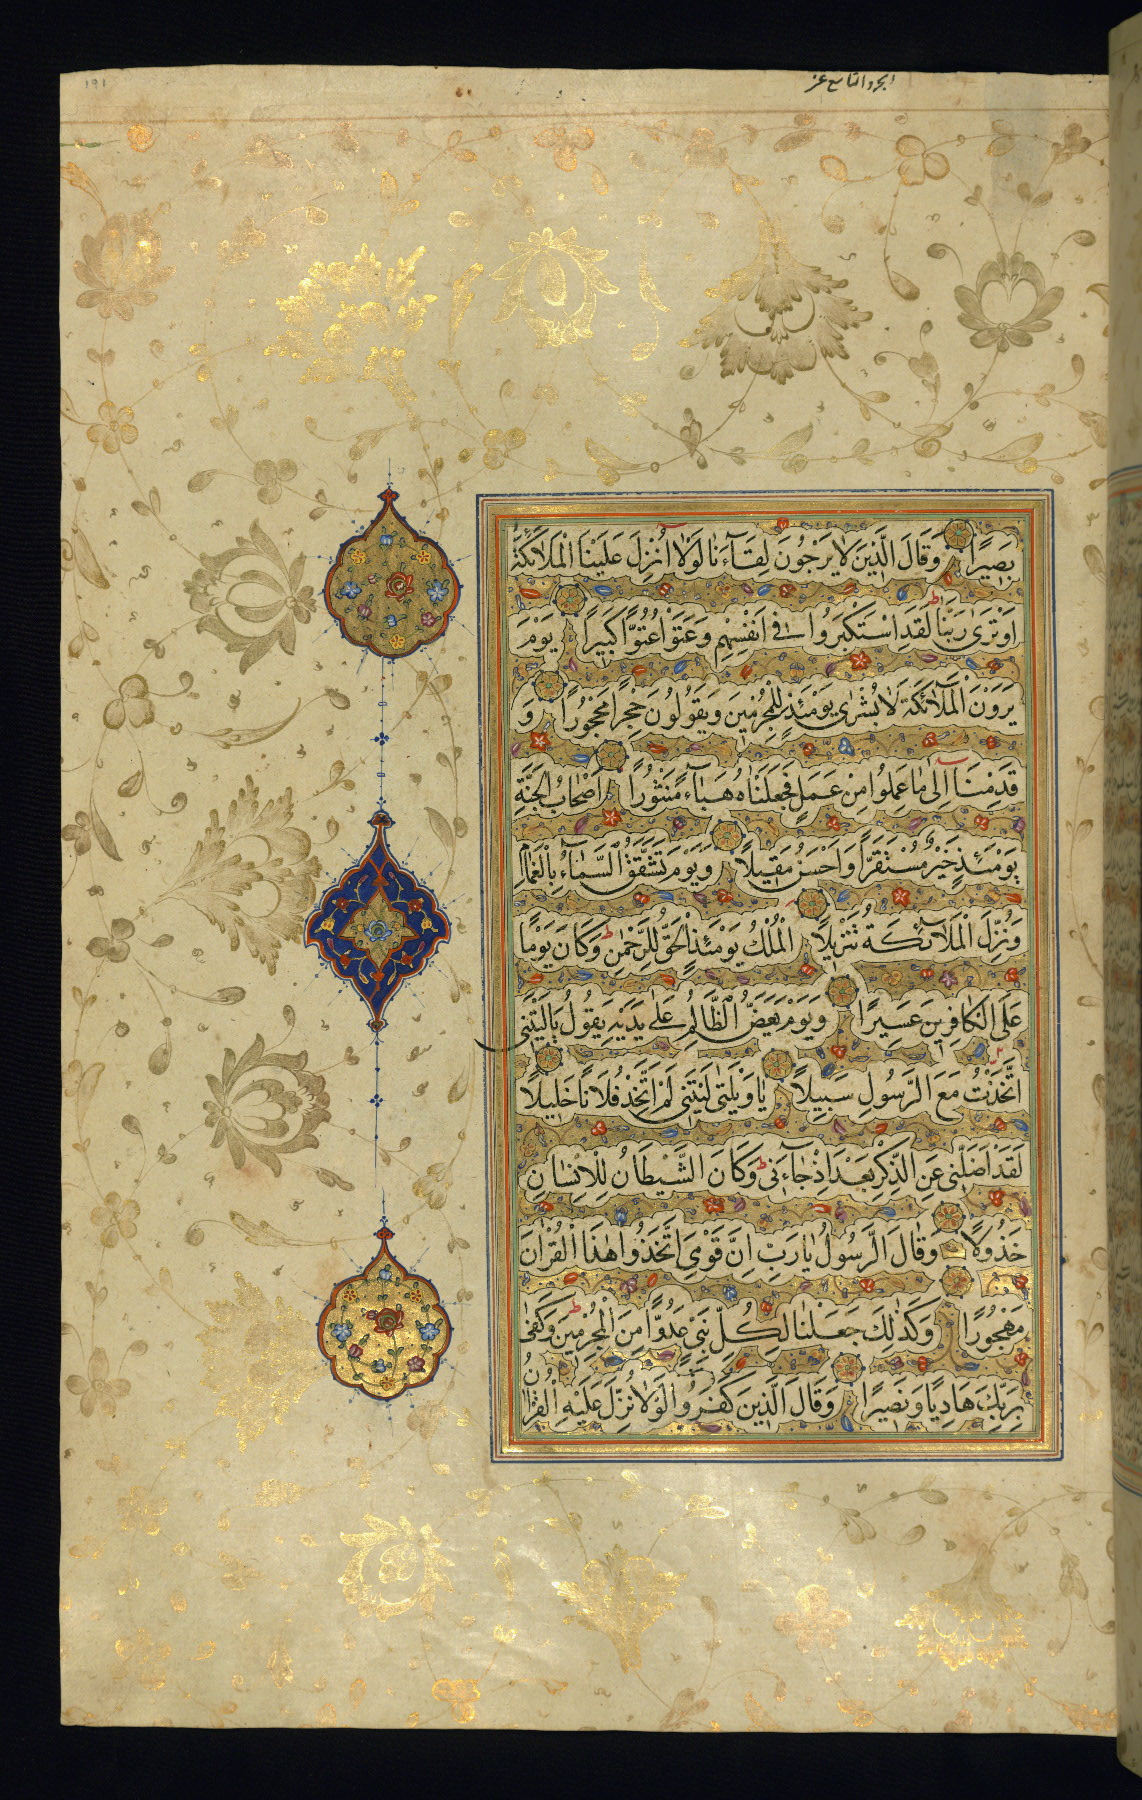 الجزو التاسع عشر
١٩١
بَصِيرًا وَقَالَ الَّذِينَ لَا يَرْجُونَ لِقَاءَنَا لَوْلَا أُنْزِلَ عَلَيْنَا الْمَلَائِكَةُ
اَوْ نَرٰى رَبَّنَا لَقَدِ اسْتَكْبَرُوا فِي اَنْفُسِهِمْ وَعَتَوْا عُتُوًّا كَبِيرًا يَوْمَ
يَرَوْنَ الْمَلَائِكَةَ لَا بُشْرٰى يَوْمَئِذٍ لِلْمُجْرِمِينَ وَيَقُولُونَ حِجْرًا مَحْجُورًا وَ
قَدِمْنَا اِلٰى مَا عَمِلُوا مِنْ عَمَلٍ فَجَعَلْنَاهُ هَبَاءً مَنْثُورًا اَصْحَابُ الْجَنَّةِ
يَوْمَئِذٍ خَيْرٌ مُسْتَقَرًّا وَاَحْسَنُ مَقِيلًا وَيَوْمَ تَشَقَّقُ السَّمَاءُ بِالْغَمَامِ
وَنُزِّلَ الْمَلَائِكَةُ تَنْزِيلًا الْمُلْكُ يَوْمَئِذٍ الْحَقُّ لِلرَّحْمٰنِ وَكَانَ يَوْمًا
عَلَى الْكَافِرِينَ عَسِيرًا وَيَوْمَ يَعَضُّ الظَّالِمُ عَلٰى يَدَيْهِ يَقُولُ يَالَيْتَنِي
اتَّخَذْتُ مَعَ الرَّسُولِ سَبِيلًا يَا وَيْلَتٰى لَيْتَنِي لَمْ اَتَّخِذْ فُلَانًا خَلِيلًا
لَقَدْ اَضَلَّنِي عَنِ الذِّكْرِ بَعْدَ اِذْ جَاءَنِي وَكَانَ الشَّيْطَانُ لِلْاِنْسَانِ
خَذُولًا وَقَالَ الرَّسُولُ يَا رَبِّ اِنَّ قَوْمِي اتَّخَذُوا هٰذَا الْقُرْاٰنَ
مَهْجُورًا وَكَذٰلِكَ جَعَلْنَا لِكُلِّ نَبِيٍّ عَدُوًّا مِنَ الْمُجْرِمِينَ وَكَفٰى
بِرَبِّكَ هَادِيًا وَنَصِيرًا وَقَالَ الَّذِينَ كَفَرُوا لَوْلَا نُزِّلَ عَلَيْهِ الْقُرْاٰنُ